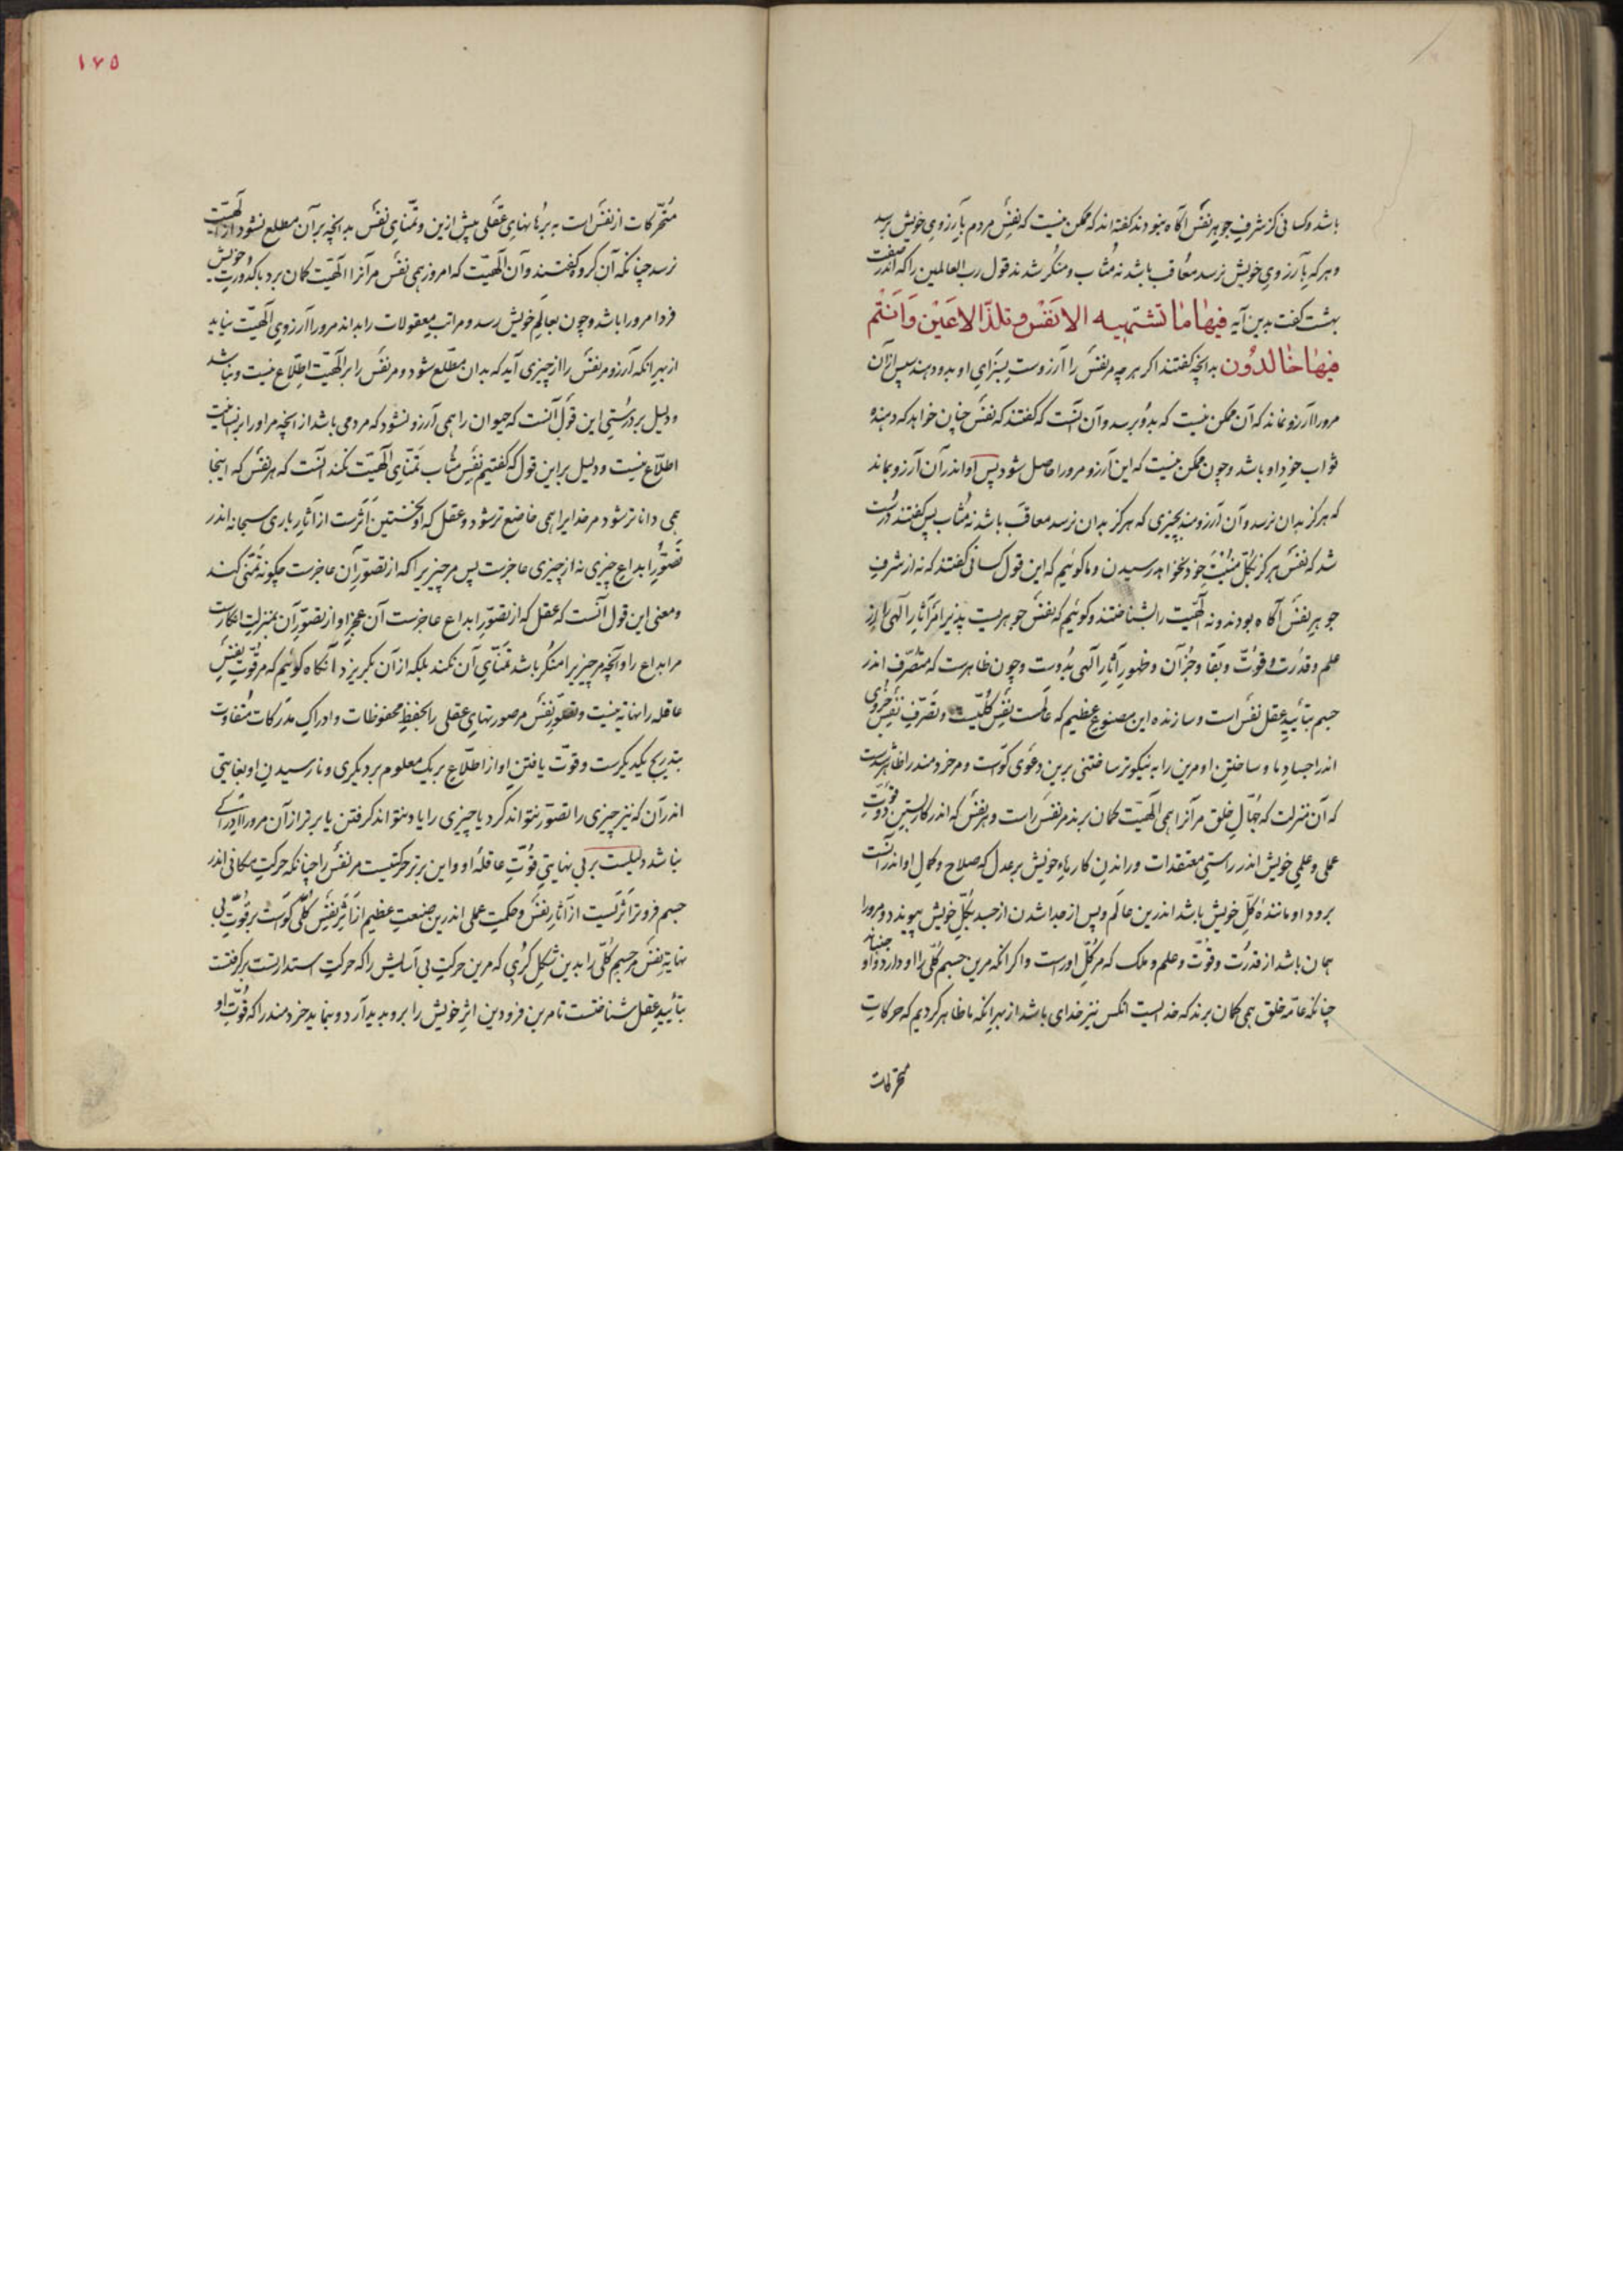 باشد و کسانی کز شرفِ جوهرِ نفس آگاه نبودند گفته‌اند که ممکن نیست که نفسِ مردم بآرزوی خویش برسد
و هر که بآرزوی خویش نرسد معاقب باشد نه مثاب و منکر شدند قول رب العالمین را که اندر صفت
بهشت گفت بدین آیه فیها ما تشتهیه الانفس و تلذ الاعین و انتم
فیها خالدون بدانچه گفتند اگر هر چه مر نفس را آرزوست بسزای او بدو دهند سپس ازان
مرورا آرزو نماند که آن ممکن نیست که بدو برسد و آن آنست که گفتند که نفس چنان خواهد که دهنده
ثواب خود او باشد و چون ممکن نیست که این آرزو مرورا حاصل شود پس او اندر آن آرزو بماند
که هرگز بدان نرسد و آن آرزومند بچیزی که هرگز بدان نرسد معاقب باشد نه مثاب پس گفتند درست
شد که نفس هرگز بکل خود نخواهد رسیدن و ما گوئیم که این قول کسانی گفتند که نه از شرفِ
جوهرِ نفس آگاه بودند و نه الهیت را بشناختند و گوئیم که نفس جوهریست پذیرا مر آثار الهی را از
علم و قدرت و قوت و بقا و جز آن و ظهورِ آثارِ الهی بدوست و چون ظاهرست که متصرف اندر
جسم بتأییدِ عقل نفس است و سازنده این مصنوعِ عظیم که عالمست نفس کلیست و تصرفِ نفس جزوی
اندر اجسادِ ما و ساختنِ او مرین را به نیکوتر ساختنی برین دعوی گواست و مر خردمند را ظاهرست
که آن منزلت که جهّالِ خلق مر آنرا همی الهیت گمان برند مر نفس راست و هر نفس که اندر کار بستن دو قوتِ
عملی و علمی خویش اندر راستی معتقدات و راندن کارهای خویش بر عدل که صلاح و کمالِ او اندر آنست
برود او مانندهٔ کلِّ خویش باشد اندرین عالم و پس از جدا شدن از جسد بکلِّ خویش پیوندد و مرورا
همان باشد از قدرت و قوت و علم و ملک که مر کل او راست و اگر آنکه مرین جسم کلّی را او دارد و او جنباند
چنانکه عامهٔ خلق همی گمان برند که خدایست آنکس نیز خدای باشد از بهر آنکه ما ظاهر کردیم که حرکاتِ
متحرکات
١٧٥
متحرکات از نفس است به برهانهای عقلی پیش ازین و تمنای نفس بدانچه بر آن مطلع نشود از الهیت
نرسد چنانکه آن گروه گفتند و آن الهیت که امروز همی نفس مر آنرا الهیت گمان برد با کدورتِ خویش
فردا مرورا باشد و چون بعالمِ خویش رسد و مراتبِ معقولات را بداند مرورا آرزوی الهیت نیاید
از بهر آنکه آرزو مر نفس را از چیزی آید که بدان مطلع شود و مر نفس را بر الهیت اطلاع نیست و نباشد
و دلیل بر درستی این قول آنست که حیوان را همی آرزو نشود که مردمی باشد از آنچه مر او را بر انسانیت
اطلاع نیست و دلیل بر این قول که گفتیم نفس مثاب تمنای الهیت نکند آنست که هر نفس که اینجا
همی داناتر شود مر خدایرا همی خاضع‌تر شود و عقل که او نخستین اثرست از آثارِ باری سبحانه اندر
تصورِ ابداعِ چیزی نه از چیزی عاجزست پس مر چیزیرا که از تصورِ آن عاجزست چگونه تمنی کند
و معنی این قول آنست که عقل که از تصورِ ابداع عاجزست آن عجزِ او از تصورِ آن بمنزلتِ انکارست
مر ابداع را و آنچه مر چیزیرا منکر باشد تمنای آن نکند بلکه از آن بگریزد آنگاه گوئیم که مر قوتِ نفسِ
عاقله را نهایة نیست و تصورِ نفس مر صورتهای عقلی را بحفظِ محفوظات و ادراکِ مدرکات متفاوت
بتدریج یکدیگرست و قوت یافتنِ او از اطلاع بر یک معلوم بر دیگری و نارسیدنِ او بغایتی
اندر آن که نیز چیزی را تصور نتواند کرد یا چیزی را یاد نتواند گرفتن یا بر فراز آن مرورا ادراکی
نباشد دلیلست بر بی نهایتی قوّتِ عاقلهٔ او و این برتر حرکتیست مر نفس را چنانکه حرکتِ مکانی اندر
جسم فروتر اثریست از آثارِ نفس و حکمتِ عملی اندرین صنعتِ عظیم از اثرِ نفسِ کلّی گواست بر قوّتِ بی
نهایة نفس مر جسمِ کلّی را بدین شکلِ کری که مرین حرکتِ بی آسایش را که حرکتِ استدارتست برگرفتست
بتأییدِ عقل شناختست تا مرین فرودین اثرِ خویش را برو پدید آرد و بنماید خردمند را که قوّتِ او